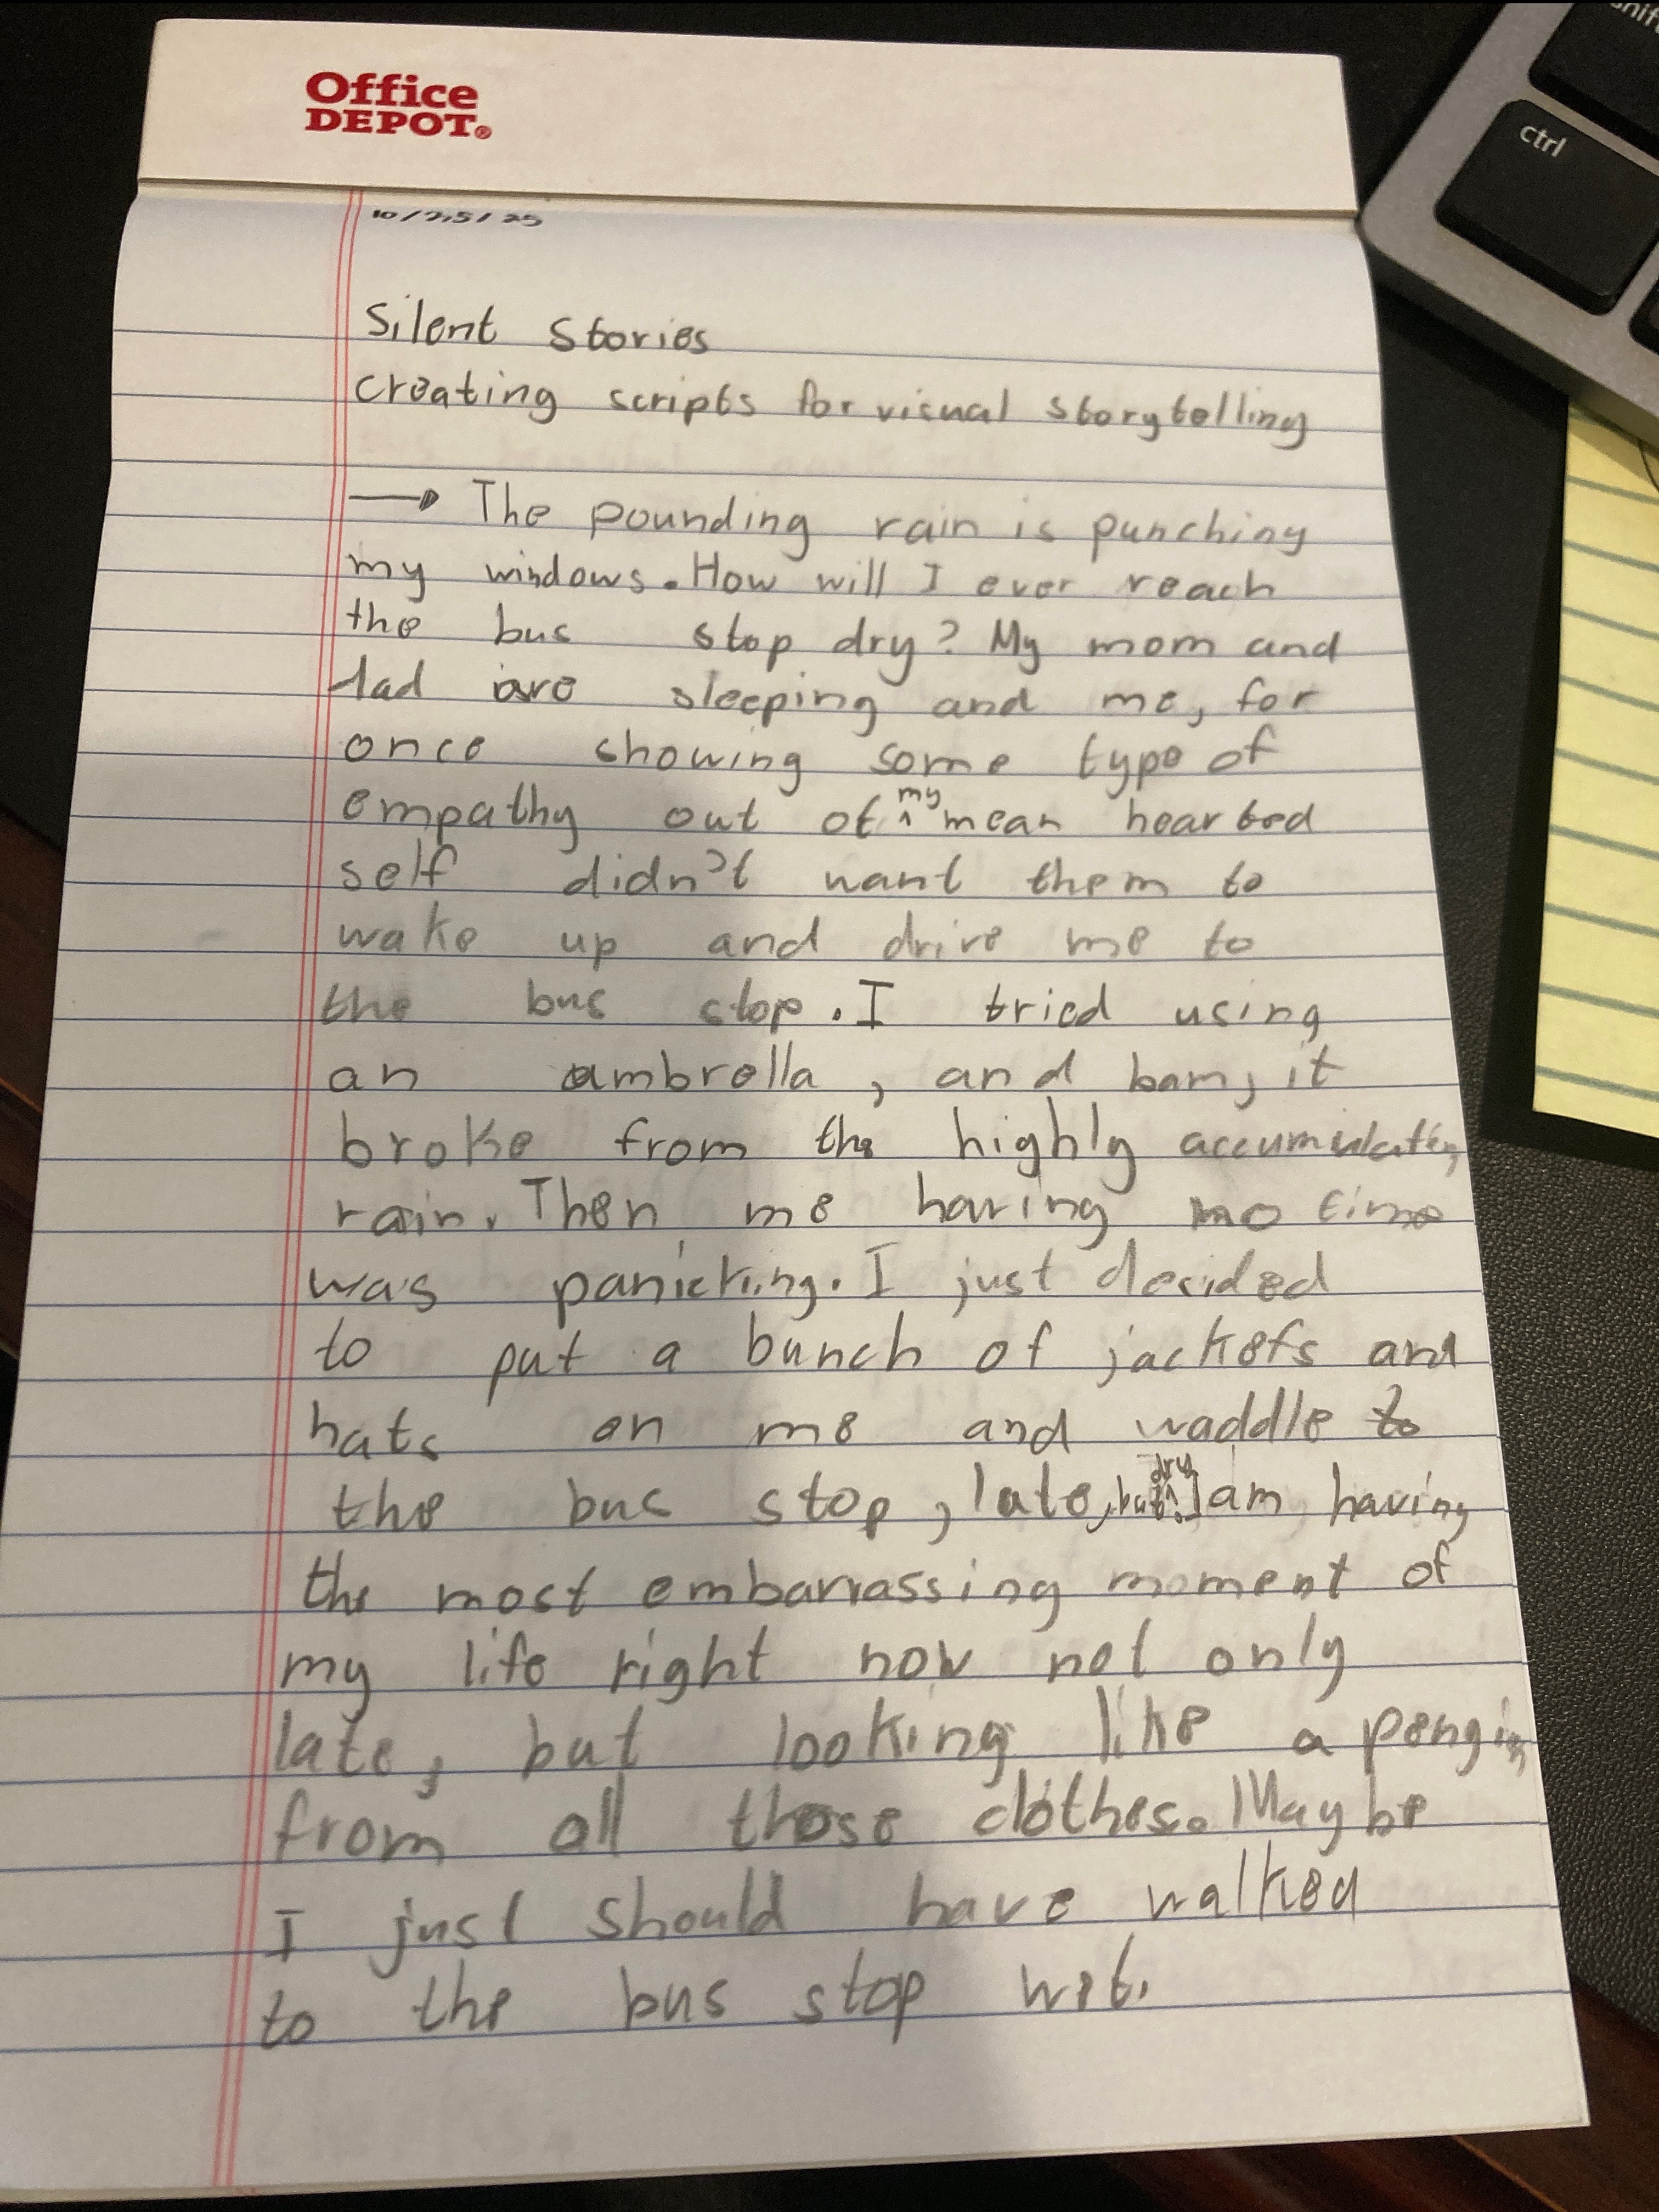 Office
DEPOT®
shift
ctrl
10/25/25
Silent Stories
creating scripts for visual storytelling
→ The pounding rain is punching
my windows. How will I ever reach
the bus stop dry? My mom and
dad are sleeping and me, for
once showing some type of
empathy out of ^my mean hearted
self didn't want them to
wake up and drive me to
the bus stop. I tried using
an ambrella, and bam, it
broke from the highly accumulating
rain. Then me having no time
was panicking. I just decided
to put a bunch of jackets and
hats on me and waddle to
the bus stop, late, but ^dry. I am having
the most embarrassing moment of
my life right now not only
late, but looking like a pengin
from all those clothes. Maybe
I just should have walked
to the bus stop wet.